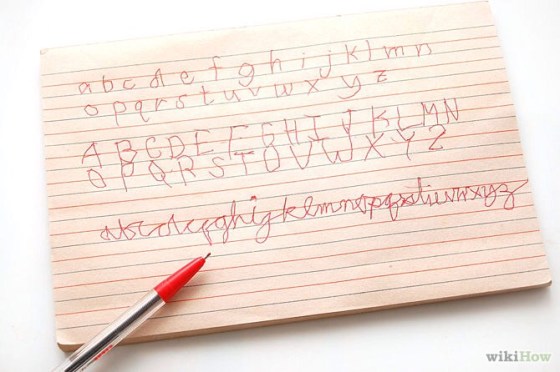 a b c d e f g h i j k l m n
o p q r s t u v w x y z
A B C D E F G H I J K L M N
O P Q R S T U V W X Y Z
abcdefghijklmnopqrstuvwxyz
wikiHow